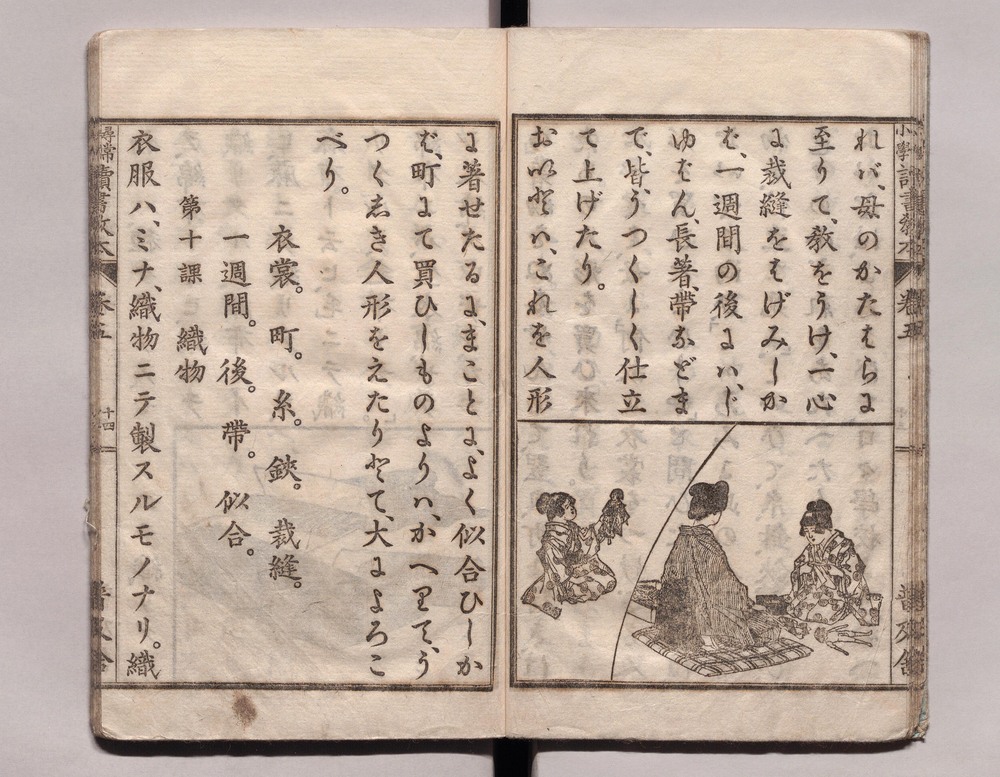 れバ、母のかたはらに
至りて、教をうけ、一心
に裁縫をはげみしか
ば、一週間の後にハ、じ
ゆばん、長著、帶などま
で、皆、うつくしく仕立
て上げたり。
お以とハ、これを人形
に著せたるに、まことに、よく似合ひしか
ば、町にて買ひしものよりハ、かへりて、う
つくしき人形をえたりとて、大によろこ
べり。
衣裳。町。糸。鋏。裁縫。
一週間。後。帶。似合。
第十課 織物
衣服ハ、ミナ、織物ニテ製スルモノナリ。織
尋常 讀書教本 卷五 十四 普及舍